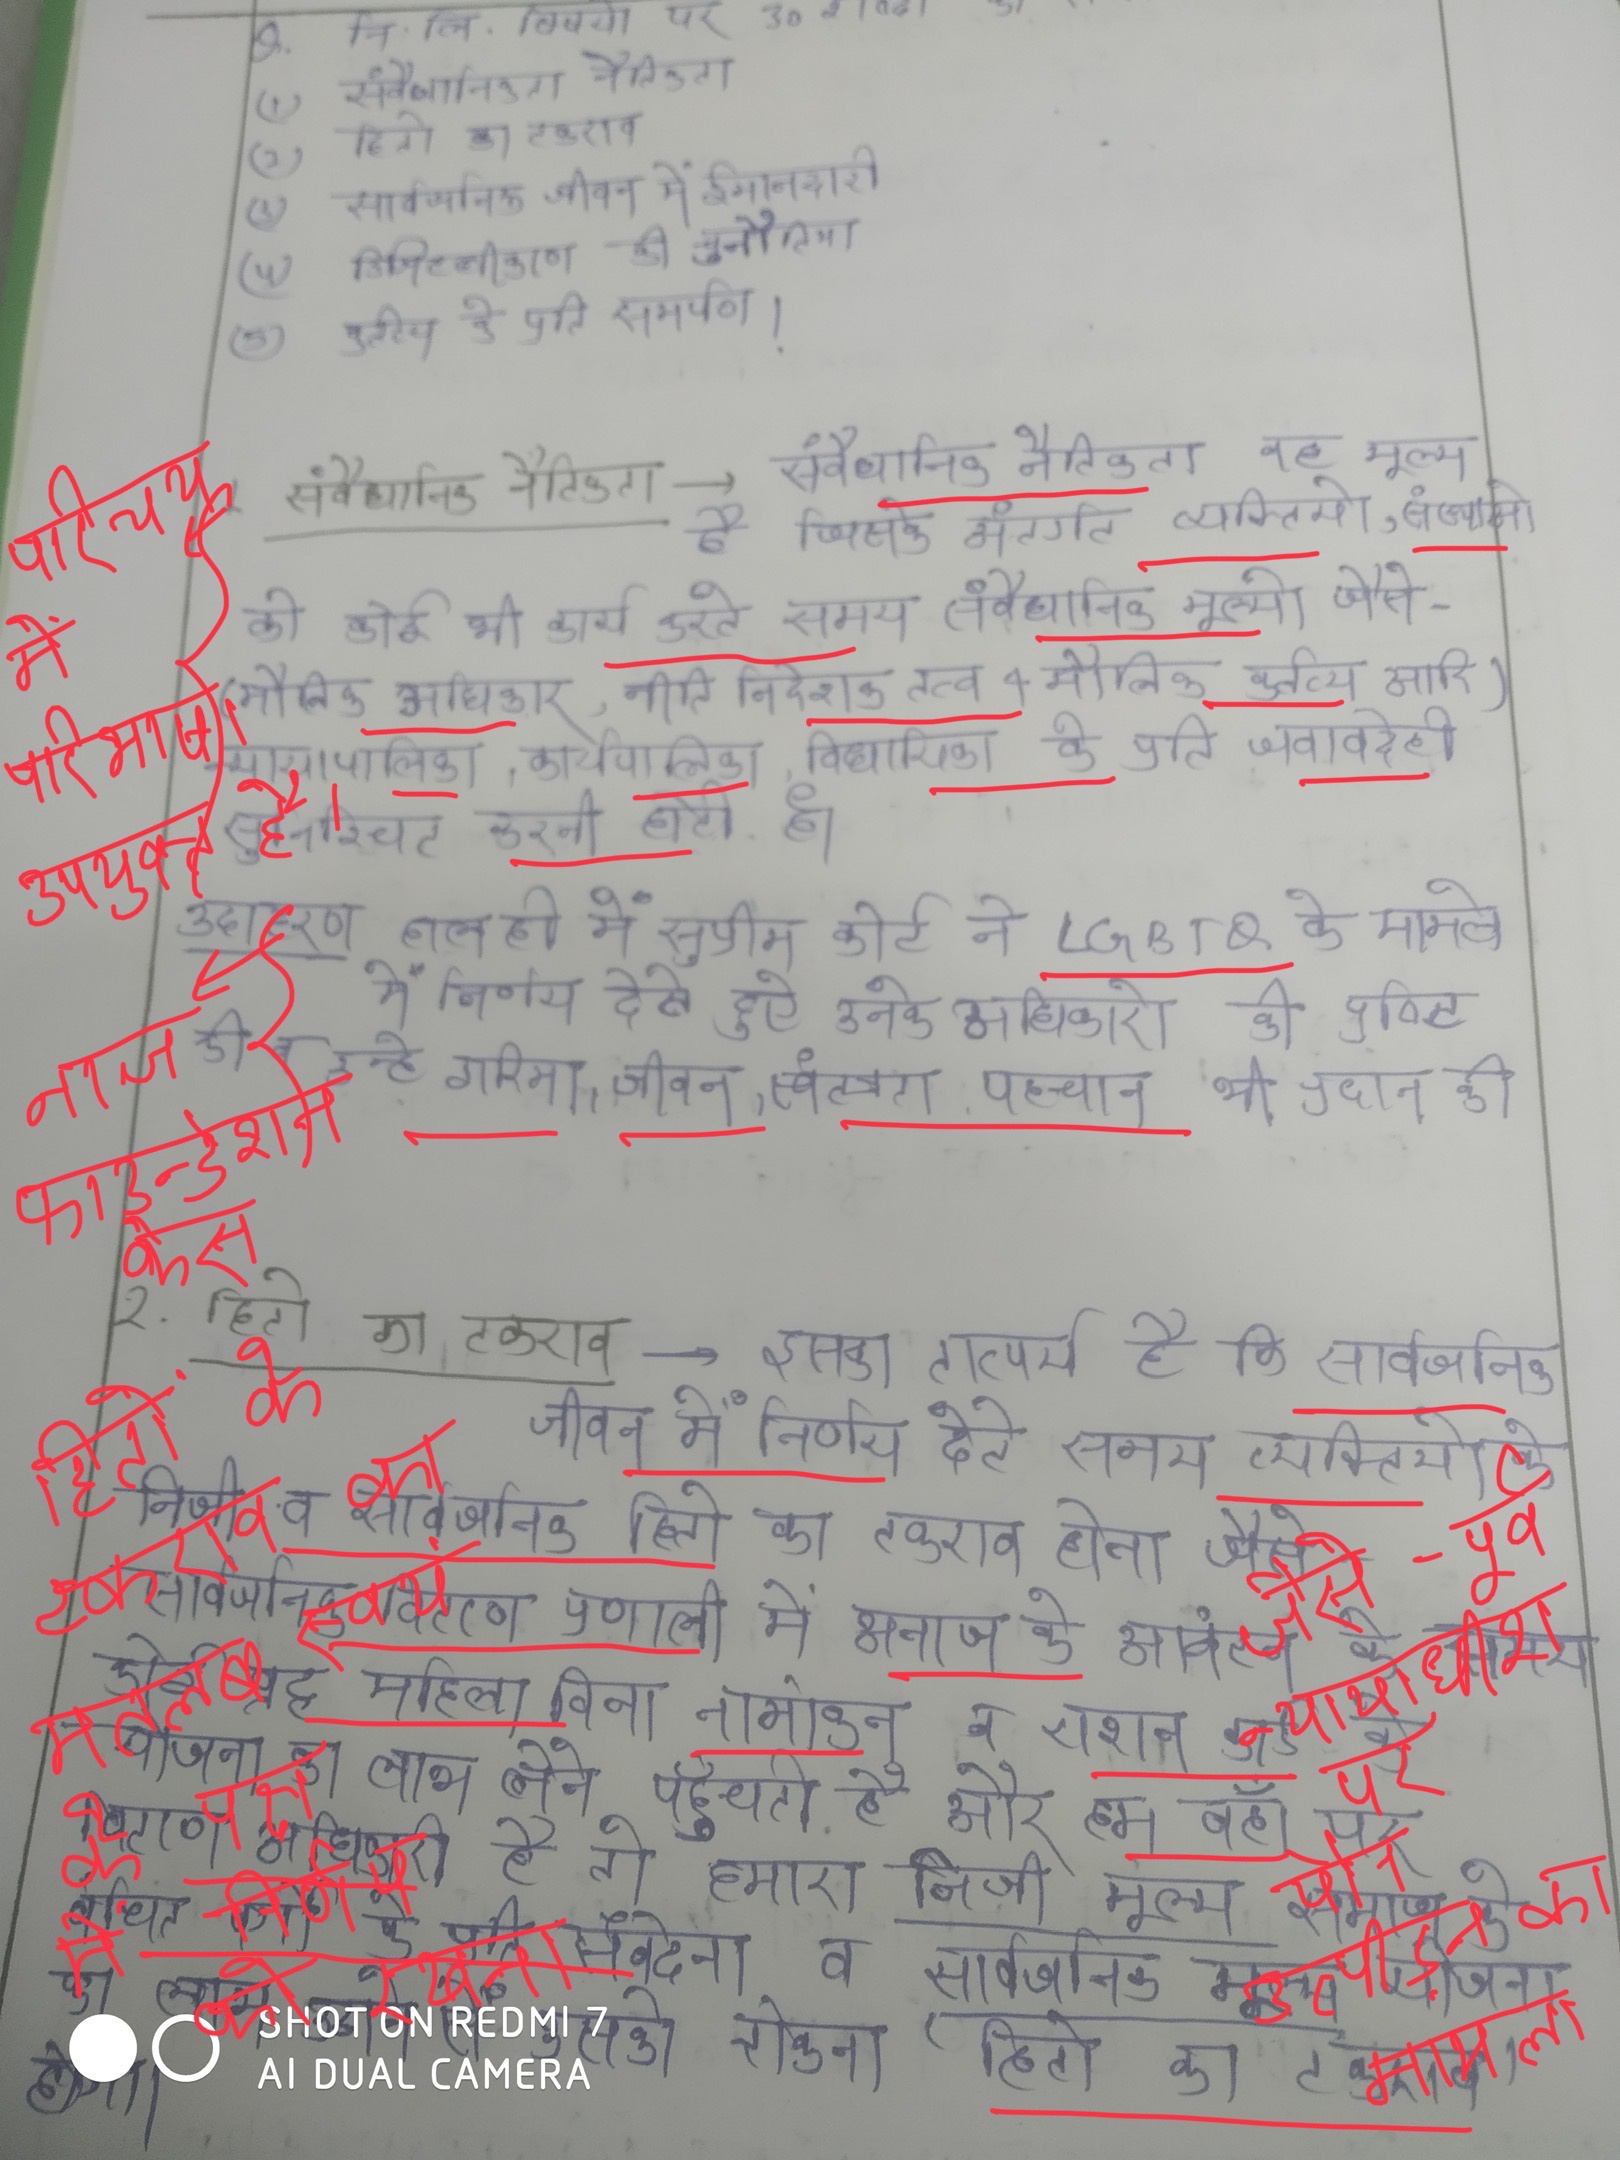 Q. नि. लि. विषयो पर 30
(1) संवैधानिकता नैतिकता
(2) हितो का टकराव
(3) सार्वजनिक जीवन में ईमानदारी
(4) डिजिटलीकरण की चुनौतिया
(5) कर्तव्य के प्रति समर्पण।
संवैधानिक नैतिकता → संवैधानिक नैतिकता वह मूल्य
है जिसके अंतर्गत व्यक्तियो, संस्थाओ
को कोई भी कार्य करते समय संवैधानिक मूल्यो जैसे-
(मौलिक अधिकार, नीति निदेशक तत्व व मौलिक कर्तव्य आदि)
न्यायपालिका, कार्यपालिका, विधायिका के प्रति जवाबदेही
सुनिश्चित करनी होती है।
परिचय
में
परिभाषा
उपयुक्त है।
उदाहरण हाल ही में सुप्रीम कोर्ट ने LGBTQ के मामले
में निर्णय देते हुऐ उनके अधिकारो की पुष्टि
की व उन्हे गरिमा, जीवन, स्वंतत्रता, पहचान भी प्रदान की
नाज
फाउन्डेशन
केस
2. हितो का टकराव → इसका तात्पर्य है कि सार्वजनिक
जीवन में निर्णय देते समय व्यक्तियो के
निजी व सार्वजनिक हितो का टकराव होना जैसे
सार्वजनिक वितरण प्रणाली में अनाज के आवंटन के समय
कोई वृद्द महिला बिना नामांकन व राशन कार्ड के
योजना का लाभ लेने पहुँचती है और हम वहाँ पर
वितरण अधिकारी है तो हमारा निजी मूल्य समाज के
वंचित वर्गो के प्रति संवेदना व सार्वजनिक मूल्य योजना
का लाभ उसको रोकना हितो का टकराव
होगा।
हितों के
टकराव का
मतलब स्वयं
के पक्ष
में निर्णय
को रखना
जैसे - पूर्व
न्यायाधीश
पर
यौन
उत्पीड़न का
मामला
SHOT ON REDMI 7
AI DUAL CAMERA